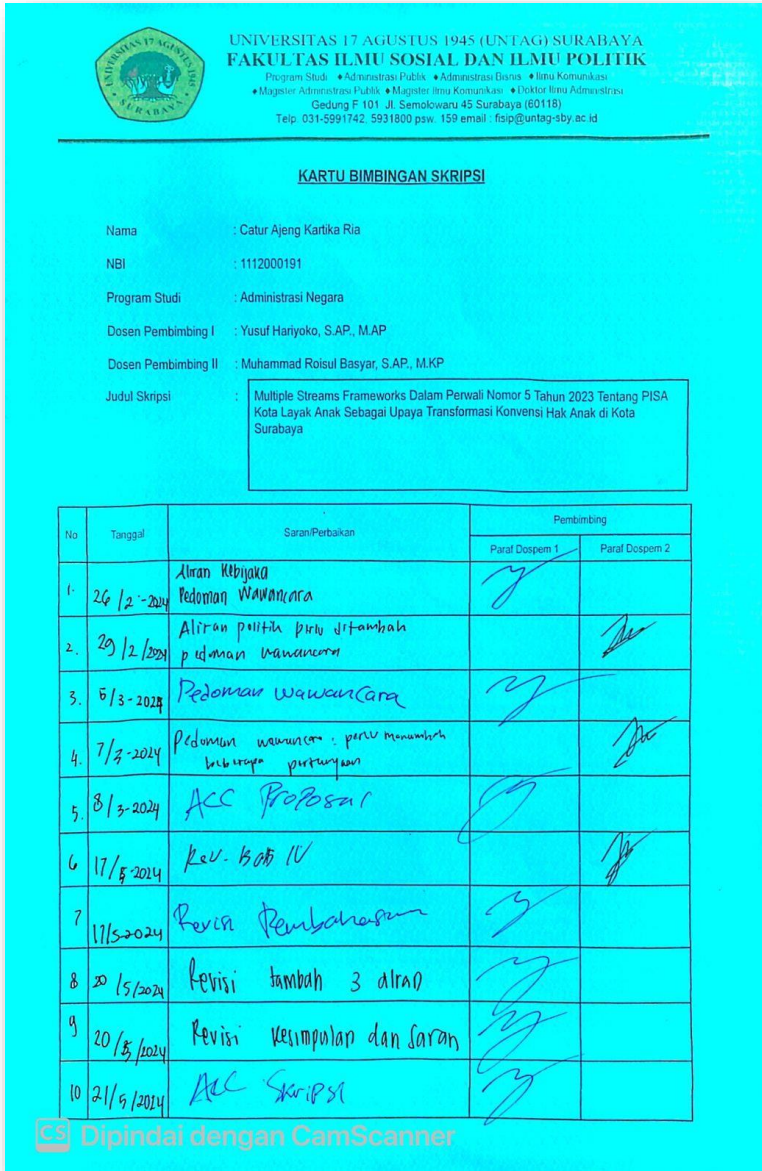 UNIVERSITAS 17 AGUSTUS 1945
SURABAYA
UNIVERSITAS 17 AGUSTUS 1945 (UNTAG) SURABAYA
FAKULTAS ILMU SOSIAL DAN ILMU POLITIK
Program Studi ♦Administrasi Publik ♦Administrasi Bisnis ♦Ilmu Komunikasi
♦Magister Administrasi Publik ♦Magister Ilmu Komunikasi ♦Doktor Ilmu Administrasi
Gedung F 101 Jl. Semolowaru 45 Surabaya (60118)
Telp. 031-5991742, 5931800 psw. 159 email : fisip@untag-sby.ac.id
KARTU BIMBINGAN SKRIPSI
Nama : Catur Ajeng Kartika Ria
NBI : 1112000191
Program Studi : Administrasi Negara
Dosen Pembimbing I : Yusuf Hariyoko, S.AP., M.AP
Dosen Pembimbing II : Muhammad Roisul Basyar, S.AP., M.KP
Judul Skripsi : Multiple Streams Frameworks Dalam Perwali Nomor 5 Tahun 2023 Tentang PISA
Kota Layak Anak Sebagai Upaya Transformasi Konvensi Hak Anak di Kota
Surabaya
No Tanggal Saran/Perbaikan Pembimbing
Paraf Dospem 1 Paraf Dospem 2
Aliran Kebijaka
1. 26/2-2024 Pedoman Wawancara
Aliran politik perlu ditambah
2. 29/2/2024 pedoman wawancara
3. 6/3-2024 Pedoman wawancara
4. 7/3-2024 Pedoman wawancara : perlu menambah
beberapa pertanyaan
5. 8/3-2024 ACC Proposal
6 17/5-2024 Rev. Bab IV
7 17/5-2024 Revisi Pembahasan
8 20/5/2024 Revisi tambah 3 aliran
9 20/5/2024 Revisi kesimpulan dan saran
10 21/5/2024 ACC Skripsi
CS Dipindai dengan CamScanner